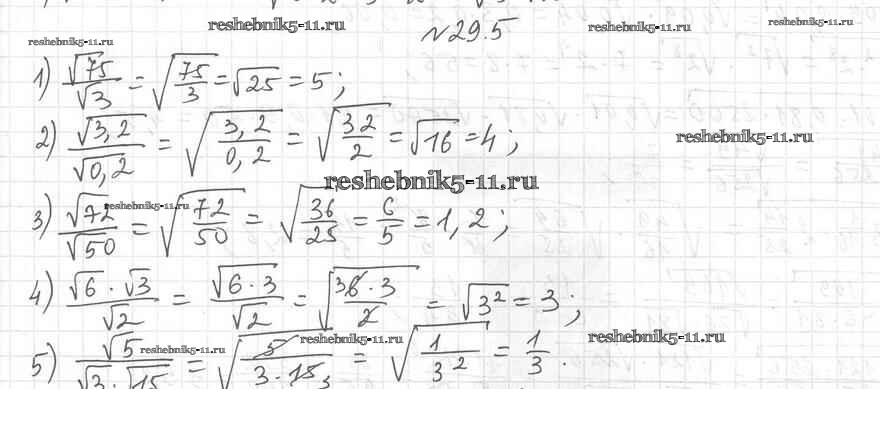 reshebnik5-11.ru
№ 29.5
reshebnik5-11.ru
reshebnik5-11.ru
reshebnik5-11.ru
1) √75/√3 = √(75/3) = √25 = 5;
2) √3,2/√0,2 = √(3,2/0,2) = √(32/2) = √16 = 4;
reshebnik5-11.ru
reshebnik5-11.ru
reshebnik5-11.ru
3) √72/√50 = √(72/50) = √(36/25) = 6/5 = 1,2;
4) (√6 · √3)/√2 = √(6 · 3)/√2 = √(36 · 3/2) = √3² = 3;
reshebnik5-11.ru
reshebnik5-11.ru
reshebnik5-11.ru
5) √5/(√3 · √15) = √(5/(3 · 15 3)) = √(1/3²) = 1/3.